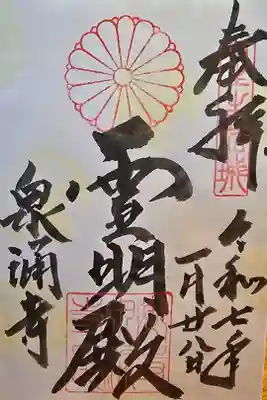 奉拝
令和七年
一月廿八日
霊明殿
泉涌寺